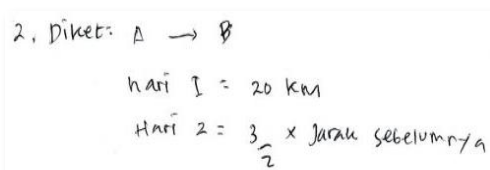 2. Diket: A → B
hari I = 20 km
Hari 2 = 3/2 x Jarak sebelumnya